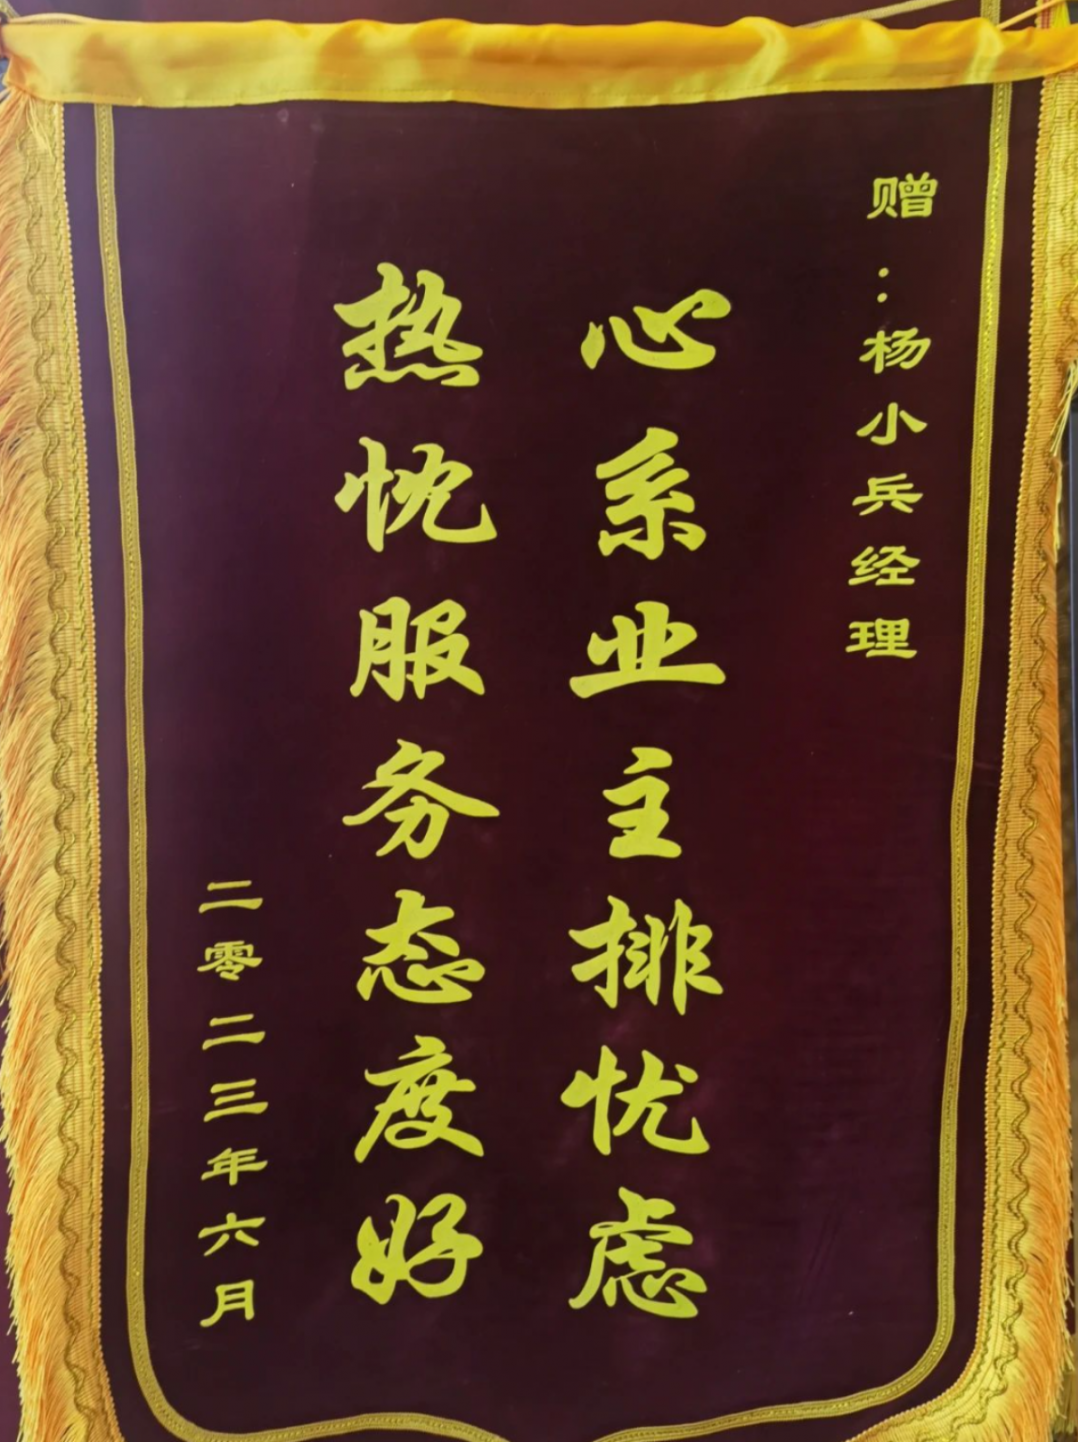 赠:杨小兵经理
心系业主排忧虑
热忱服务态度好
二零二三年六月